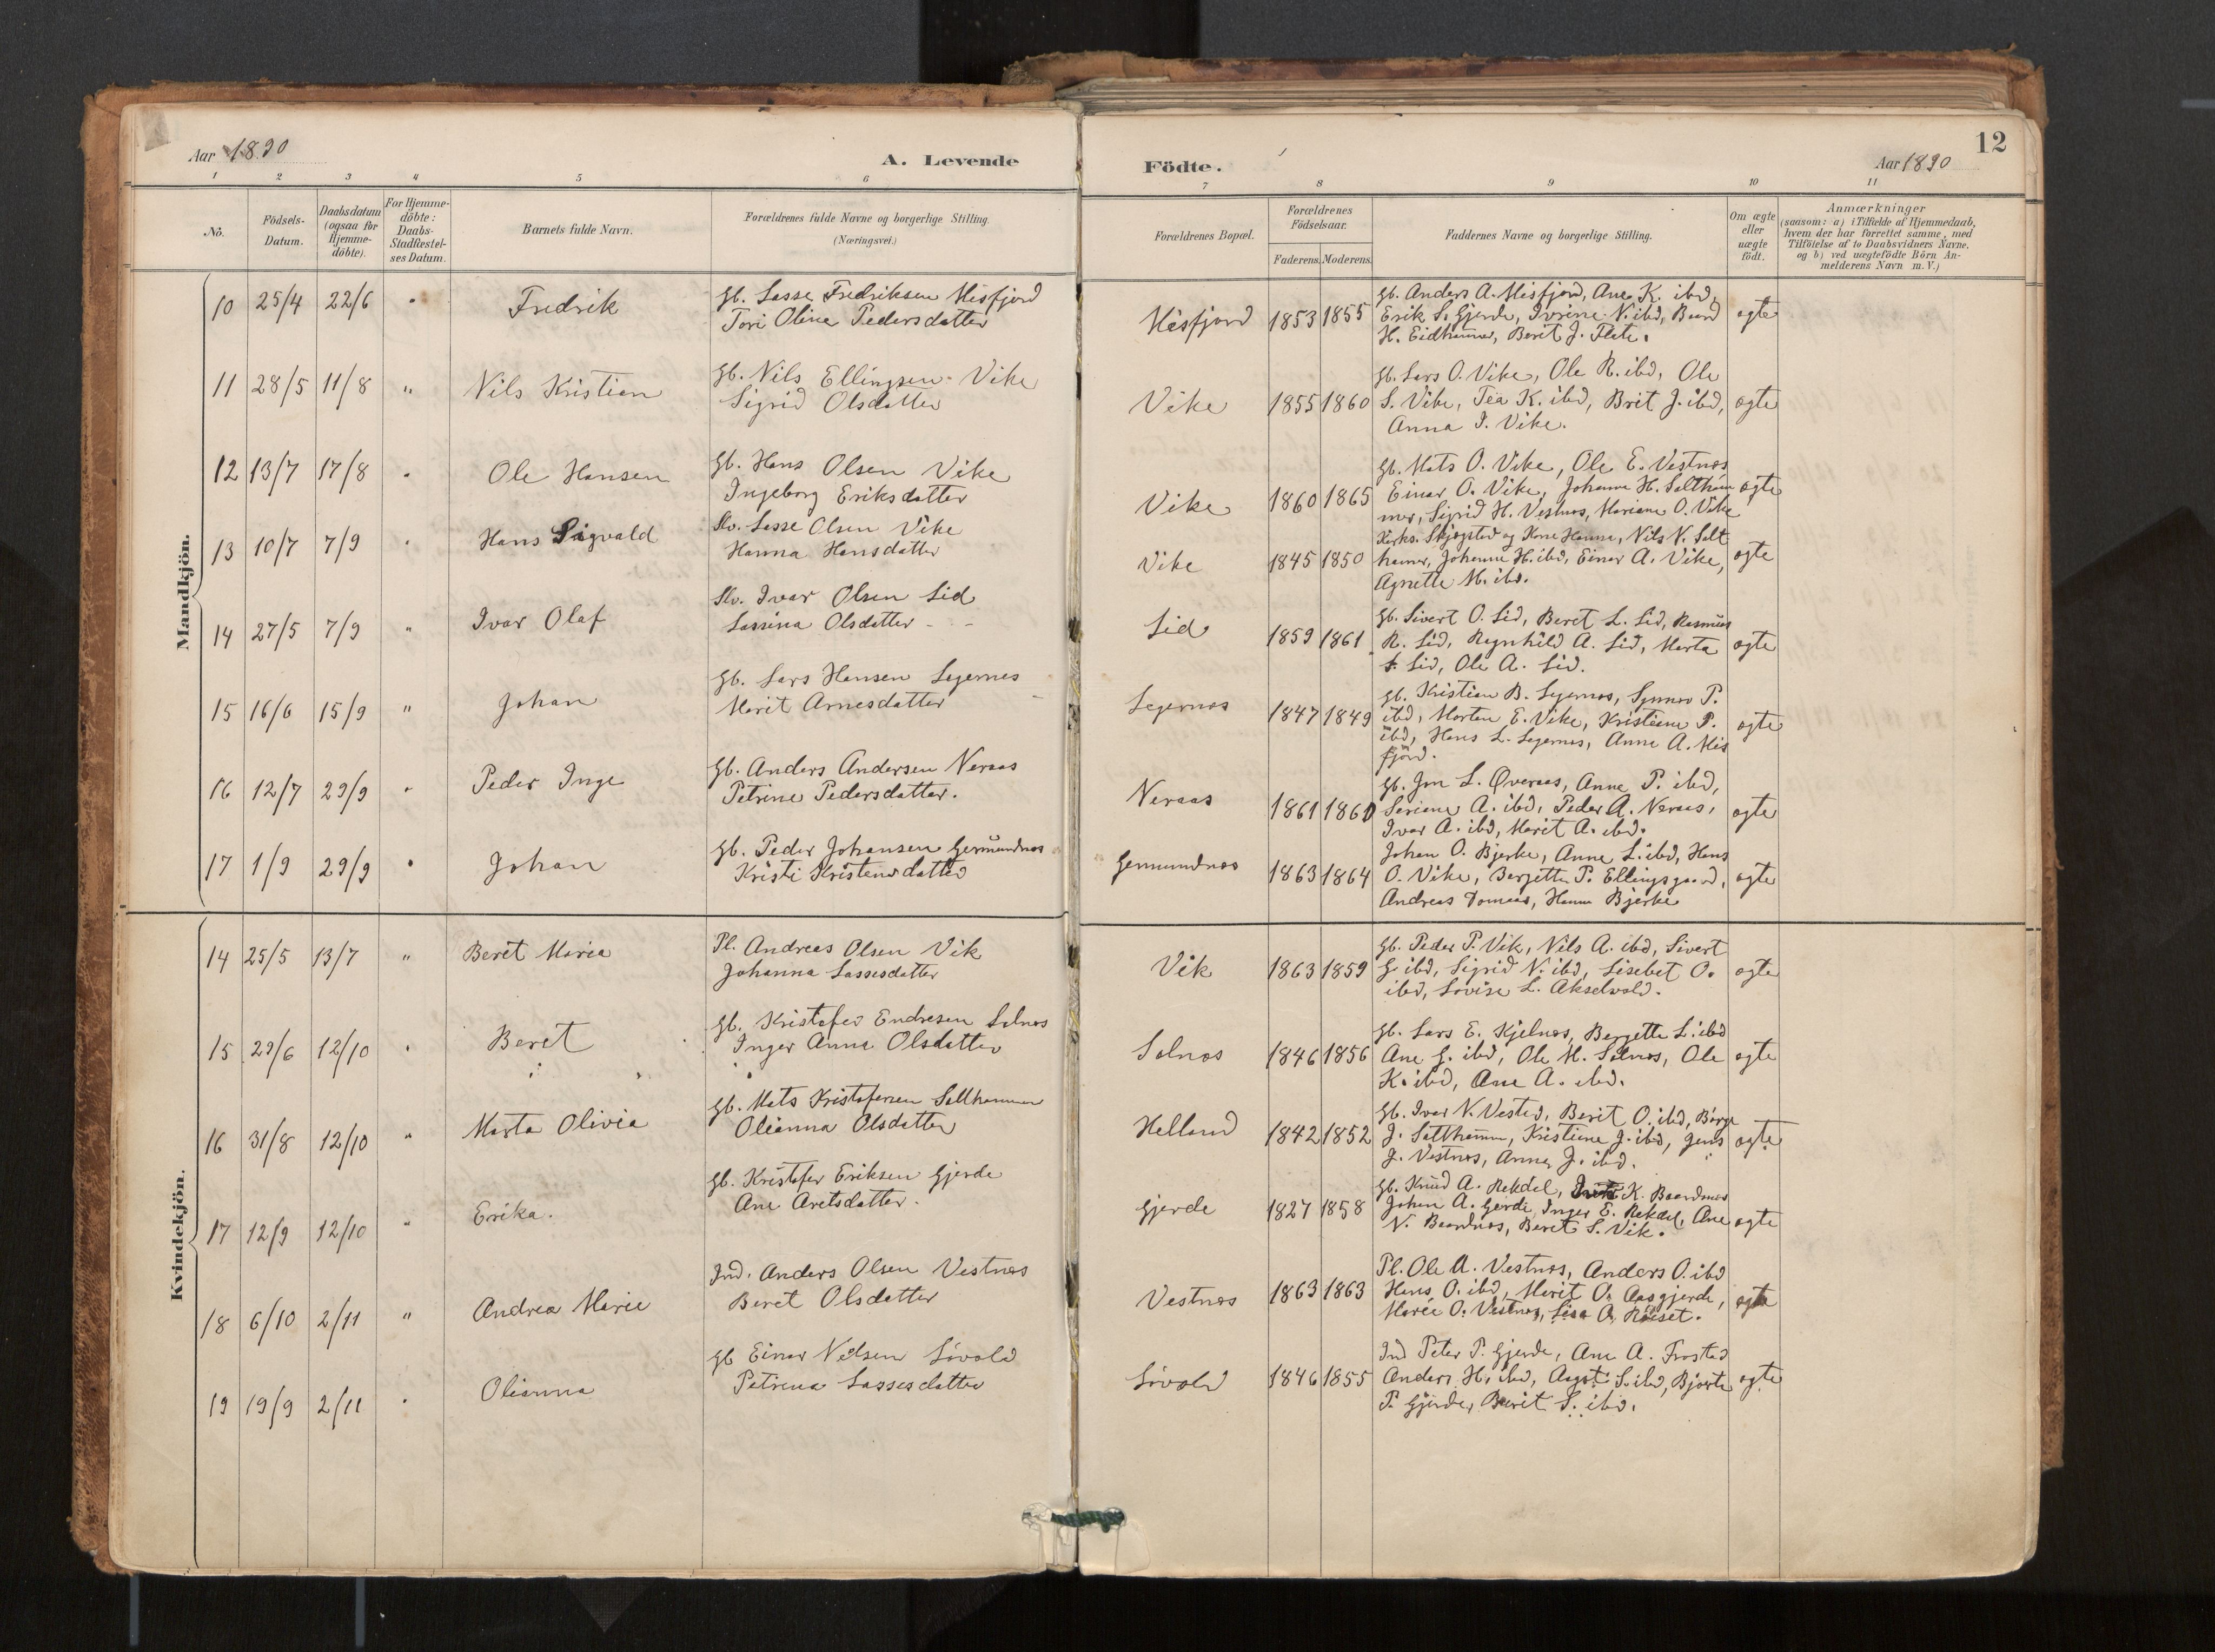 Aar 1890
A. Levende
1 2 3 4 5 6
No.
Födsels-
Datum.
Daabsdatum
(ogsaa for
Hjemme-
döbte).
For Hjemme-
döbte:
Daabs-
Stadfæstel-
ses Datum.
Barnets fulde Navn.
Forældrenes fulde Navne og borgerlige Stilling.
(Næringsvei.)
Mandkjön.
10 25/4 22/6 " Fredrik
Gb. Lasse Fredriksen Misfjord
Tori Oline Pedersdatter
11 28/5 11/8 " Nils Kristian
Gb. Nils Ellingsen Vike
Sigrid Olsdatter
12 13/7 17/8 " Ole Hansen
Gb. Hans Olsen Vike
Ingeborg Eriksdatter
13 10/7 7/9 " Hans Sigvald
Slv. Lasse Olsen Vike
Hanna Hansdatter
14 27/5 7/9 " Ivar Olaf
Slv. Ivar Olsen Lid
Lassina Olsdatter - -
15 16/6 15/9 " Johan
Gb. Lars Hansen Legernes
Marit Arnesdatter
16 12/7 29/9 " Peder Inge
Gb. Anders Andersen Neraas
Petrine Pedersdatter.
17 1/9 29/9 " Johan
Gb. Peder Johansen Gjermundnæs
Kristi Kristensdatter
Kvindekjön.
14 25/5 13/7 " Beret Maria
Pl. Andreas Olsen Vik
Johanna Lassesdatter
15 29/6 12/10 " Beret
Gb. Kristofer Endresen Solnæs
Inger Anna Olsdatter
16 31/8 12/10 " Marta Olivia
Gb. Mats Kristofersen Salthammer
Olianna Olsdatter
17 12/9 12/10 " Erika.
Gb. Kristofer Eriksen Gjerde
Ane Aretsdatter.
18 6/10 2/11 " Andrea Marie
Ind. Anders Olsen Vestnes
Beret Olsdatter
19 19/9 2/11 " Olianna
Gb Einar Nilsen Sövold
Petrina Lassesdatter
Födte.
12
Aar 1890
7 8 9 10 11
Forældrenes Bopæl.
Forældrenes
Födselsaar.
Faderens. Moderens.
Faddernes Navne og borgerlige Stilling.
Om ægte
eller
uægte
födt.
Anmærkninger
(saasom: a) i Tilfælde af Hjemmedaab,
hvem der har forrettet samme, med
Tilföielse af to Daabsvidners Navne,
og b) ved uægtefödte Börn An-
melderens Navn m. V.)
Gb. Anders A. Misfjord, Ane K. ibd,
Misfjord 1853 1855 Erik S. Gjerde, Ivrine N. ibd, Baard ægte
H. Eidhammer, Berit J. Flate.
Gb. Lars O. Vike, Ole R. ibd, Ole
Vike 1855 1860 S. Vike, Tea K. ibd, Brit J. ibd, ægte
Anna I. Vike.
Gb. Mats O. Vike, Ole E. Vestnæs
Vike 1860 1865 Einar O. Vike, Johanna H. Saltham ægte
mer, Sigrid H. Vestnes, Mariane O. Vike
Kirks. Skjegstad og Kone Hanna, Nils N. Salt
Vike 1845 1850 hamer, Johanne H. ibd, Einar A. Vike, ægte
Agnette M. ibd.
Gb. Sivert O. Lid, Beret L. Lid, Rasmus
Lid 1859 1861 R. Lid, Ragnhild A. Lid, Marta ægte
L. Lid, Ole A. Lid.
Gb. Kristian B. Legernes, Synnøv P.
Legernes 1847 1849 ibd, Morten E. Vike, Kristiane P. ægte
ibd, Hans L. Legernes, Anne A. Mis
fjord.
Gb. Jon L. Øveraas, Anne P. ibd,
Neraas 1861 1860 Seriane A. ibd, Peder A. Neraas, ægte
Ivar A. ibd, Marit A. ibd.
Johan O. Bjerke, Anne L. ibd, Hans
Gjermundnæs 1863 1864 O. Vike, Bergitte P. Ellingsgaard, ægte
Andreas Tomaas, Hanna Bjerke
Gb. Peder P. Vik, Nils A. ibd, Sivert
Vik 1863 1859 G ibd, Sigrid N. ibd, Lisebet O. ægte
ibd, Lovise L. Akselvold.
Gb. Lars E. Kjelnes, Bergette L. ibd
Solnæs 1846 1856 Ane G. ibd, Ole M. Solnæs, Ole ægte
K. ibd, Ane A. ibd.
Gb. Ivar N. Vestad, Berit O. ibd, Börge
Helland 1842 1852 J. Salthamm, Kristine J. ibd, Jens ægte
J. Vestnes, Anna J. ibd.
Gb. Knud A. Rekdal, K. Baardnæs
Gjerde 1827 1858 Johan A. Gjerde, Inger E. Rekdal, Ane ægte
N. Baardnæs, Beret S. Vik.
Pl. Ole A. Vestnæs, Anders O. ibd
Vestnes 1863 1863 Hans O. ibd, Marit O. Aasgjerde, ægte
Marie O. Vestnes, Lisa O. Röiset.
Ind Peter P. Gjerde, Ane A. Frostad
Sövold 1846 1855 Anders H. ibd, Aagot S. ibd, Bjarte ægte
P. Gjerde, Berit S. ibd.